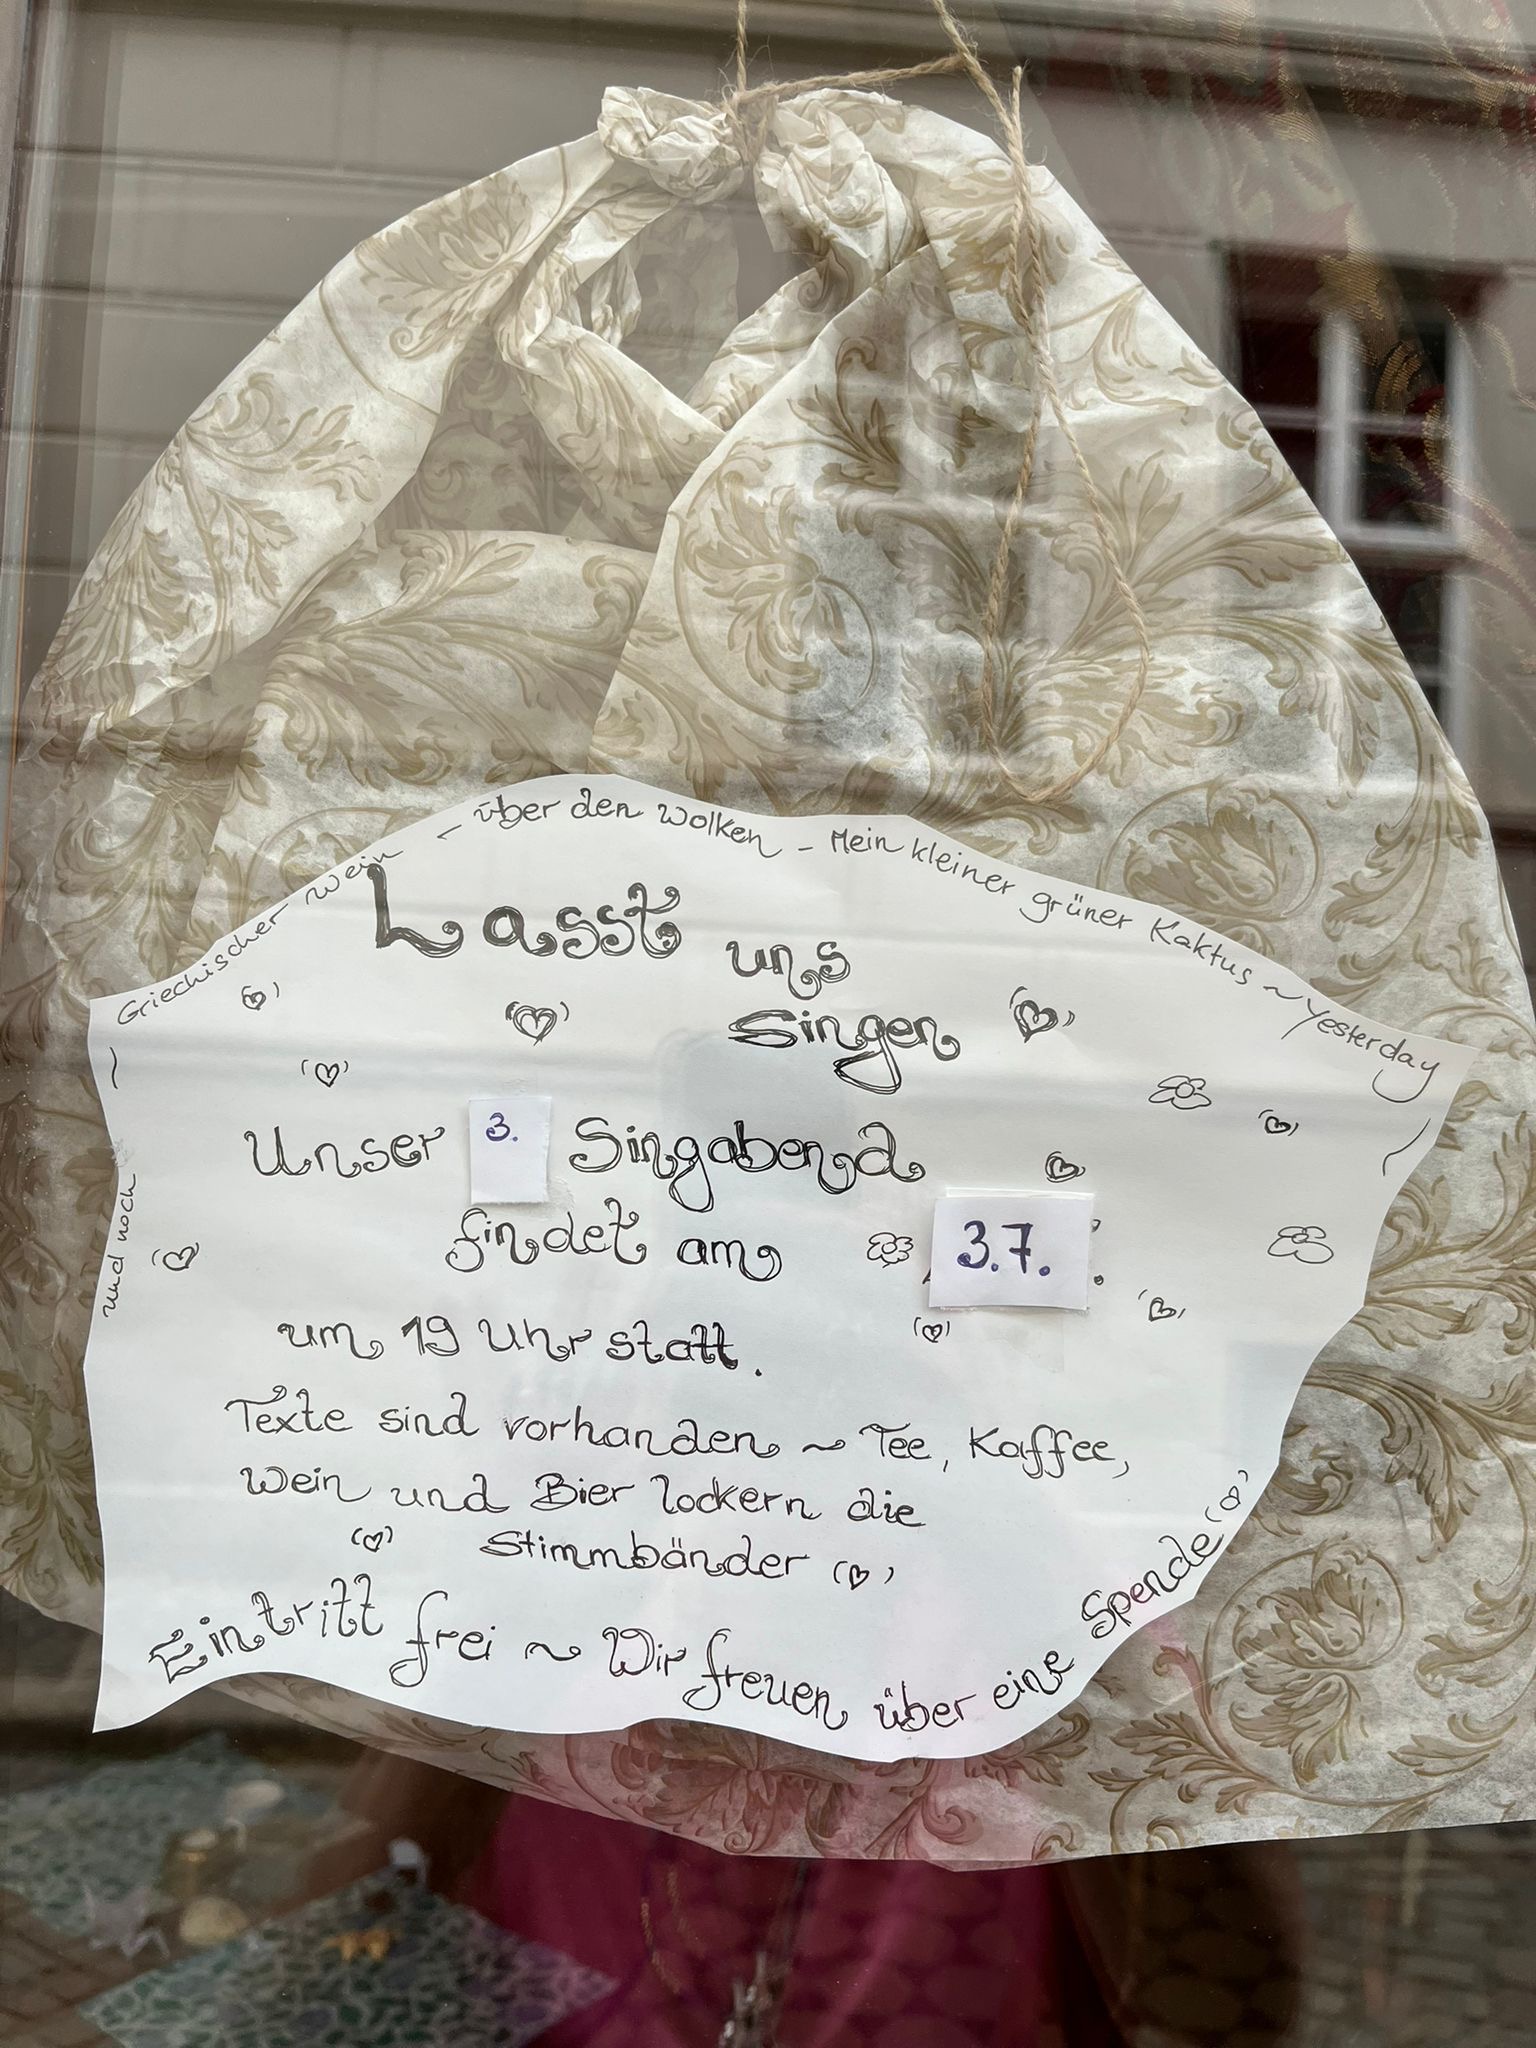 Griechischer Wein ~ über den Wolken - Mein kleiner grüner Kaktus ~ Yesterday ~
Lasst uns
Singen
Unser 3. Singabend
findet am 3.7.
um 19 Uhr statt.
Texte sind vorhanden ~ Tee, Kaffee,
Wein und Bier lockern die
Stimmbänder
Eintritt frei ~ Wir freuen über eine Spende
und noch ~